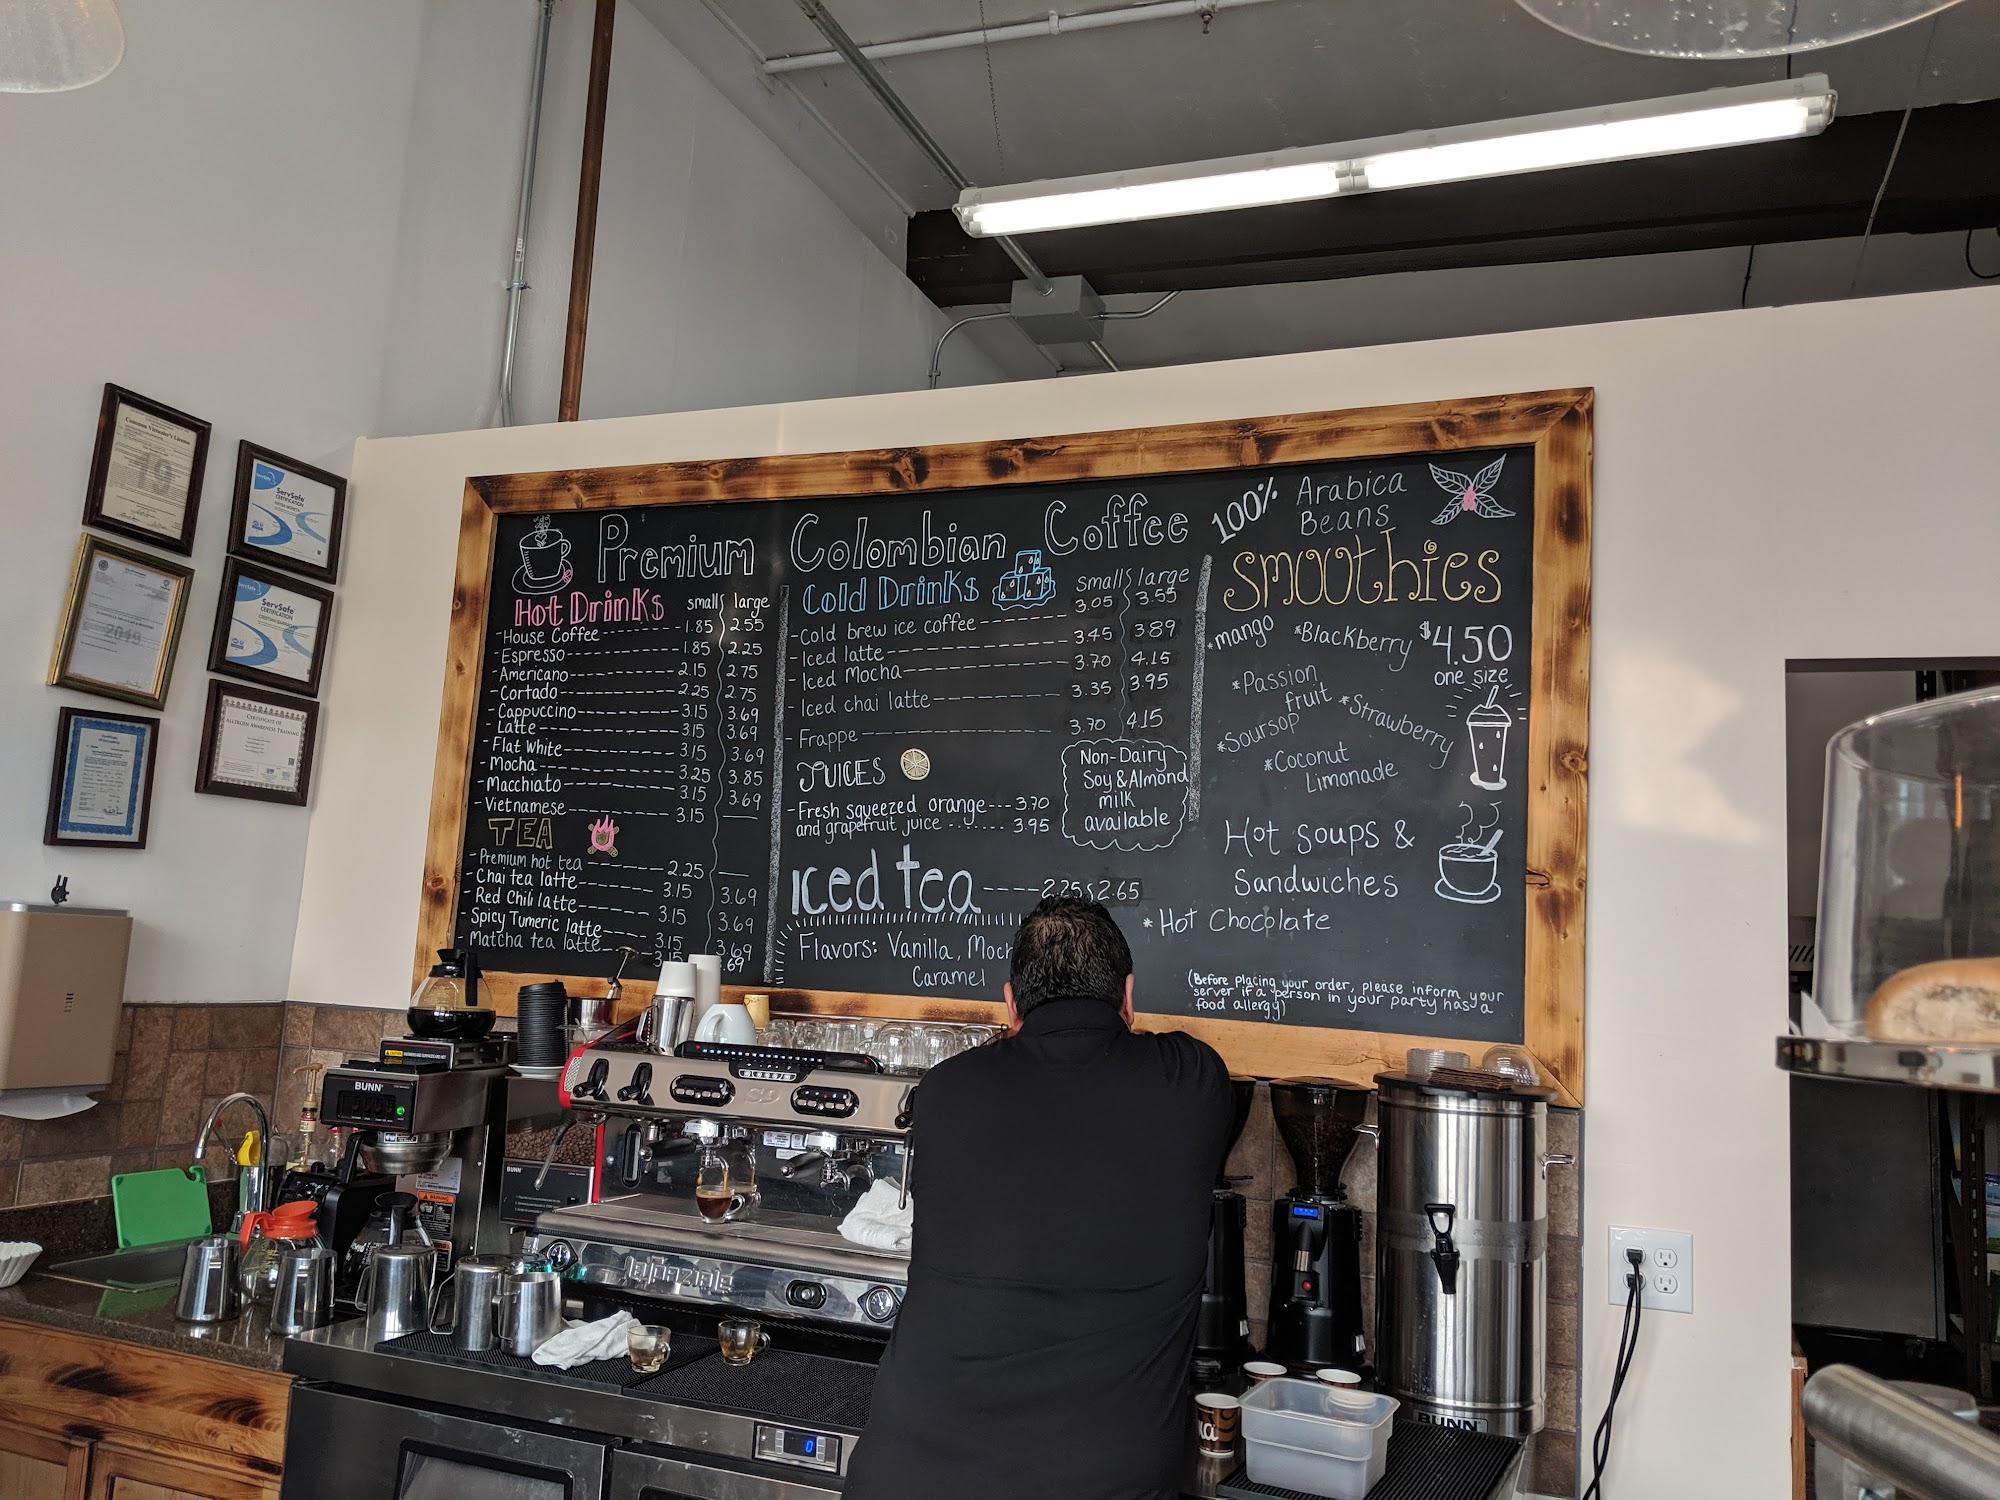 Common Victualer's License
19
ServSafe
CERTIFICATION
ServSafe
CERTIFICATION
2019
CERTIFICATE OF
ALLERGEN AWARENESS TRAINING
Premium Colombian Coffee
100% Arabica
Beans
Hot Drinks small large
-House Coffee 1.85 2.55
-Espresso 1.85 2.25
-Americano 2.15 2.75
-Cortado 2.25 2.75
-Cappuccino 3.15 3.69
-Latte 3.15 3.69
-Flat White 3.15 3.69
-Mocha 3.25 3.85
-Macchiato 3.15 3.69
-Vietnamese 3.15
TEA
-Premium hot tea 2.25
-Chai tea latte 3.15 3.69
-Red Chili latte 3.15 3.69
-Spicy Tumeric latte 3.15 3.69
-Matcha tea latte 3.15 .69
Cold Drinks small large
-Cold brew ice coffee 3.05 3.55
-Iced latte 3.45 3.89
-Iced Mocha 3.70 4.15
-Iced chai latte 3.35 3.95
-Frappe 3.70 4.15
JUICES
-Fresh squeezed orange 3.70
and grapefruit juice 3.95
Non-Dairy
Soy & Almond
milk
available
Iced tea 2.25 2.65
Flavors: Vanilla, Moch
Caramel
Smoothies
*mango *Blackberry $4.50
one size
*Passion
fruit *Strawberry
*Soursop
*Coconut
Limonade
Hot soups &
Sandwiches
*Hot Chocolate
(Before placing your order, please inform your
server if a person in your party has a
food allergy)
BUNN
BUNN
S9
WARNING
LA PAZIALE
0
BUNN